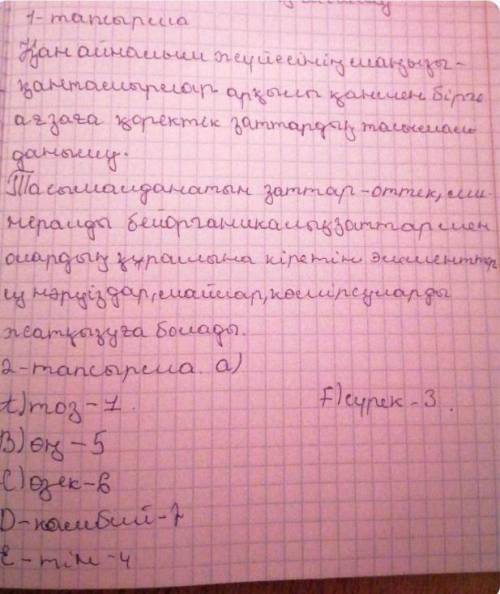 1-тапсырма
Қан айналым жүйесінің маңызы-
қантамырлар арқылы қанмен бірге
ағзаға қоректік заттардың тасымал
данылу.
Тасымалданатын заттар-оттек, ми
нералды бейорганикалық заттар мен
олардың құрамына кіретін элементтер
ң нәруіздар, майлар, көмірсуларды
жатқызуға болады.
2-тапсырма. а)
А) тоз-1. F) сүрек-3.
В) өң-5
С) өзек-6
D-камбий-7
Е-тін-4